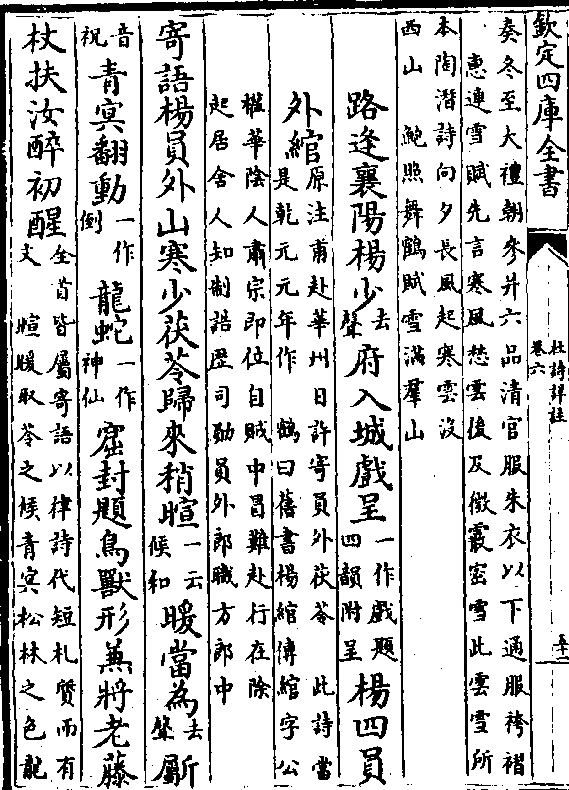 欽定四庫全書
杜詩詳註
卷六
至
癸冬至大禮朝參并六品清官服朱衣以下通服袴褶
惠連雪賦先言寒風愁雲後及微霰密雪此雲雪所
本陶潛詩向夕長風起寒雲沒
西山　鮑照舞鶴賦雪滿羣山
路逢襄陽楊少去聲府入城戲呈一作戲題四韻附呈楊四員
外綰原注甫赴華州日許寄員外茯苓　此詩當是乾元元年作　鶴曰舊書楊綰傳綰字公
權華陰人肅宗即位自賊中冒難赴行在除
起居舍人知制誥歷司勛員外郎職方郎中
寄語楊員外山寒少茯苓歸來稍暄一云候和暖當為去聲斸
青冥翻動一作倒龍蛇一作神仙窟封題鳥獸形兼將老藤音祝
杖扶汝醉初醒全首皆屬寄語以律詩代短札質而有文　暄暖取苓之候青冥松林之色龍